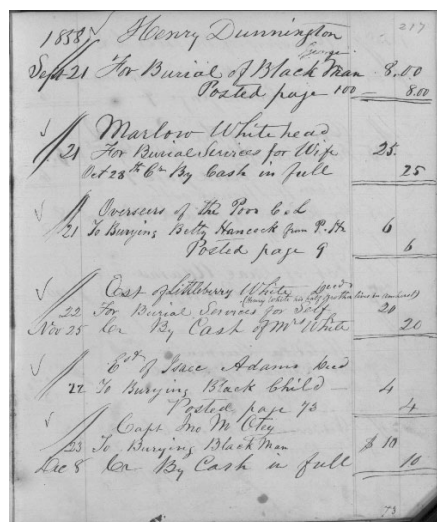 217
1858 Henry Dunnington
George
Sept 21 For Burial of Black Man 8.00
Posted page 100 8.00
Marlow Whitehead
21 For Burial Services for Wife 25.
Oct 28th Cr By Cash in full 25
Overseers of the Poor C.L
21 To Burying Betty Hancock from P. Hs 6
Posted page 9 6
Est of Littleberry White Decd
22 For Burial Services for Self 20
Nov 25 Cr By Cash of Mrs White 20
Est of Isaac Adams Decd
22 To Burying Black Child 4
Posted page 73 4
Capt Jno M Otey
23 To Burying Black Man $ 10
Dec 8 Cr By Cash in full 10
73